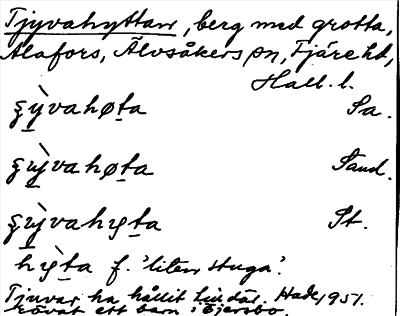 Tjyvahyttan, berg med grotta,
Alafors, Älvsåkers sn, Fjäre hd,
Hall. l.
ʂỳ̠vahøt̠a Sa.
ʂỳ̠vahøt̠a Sand.
ʂỳ̠vahyt̠a St.
hỳ̠t̠a f. 'liten stuga'.
Tjuvar ha hållit till där. Hade 1951.
rövat ett barn i Bjersbo.